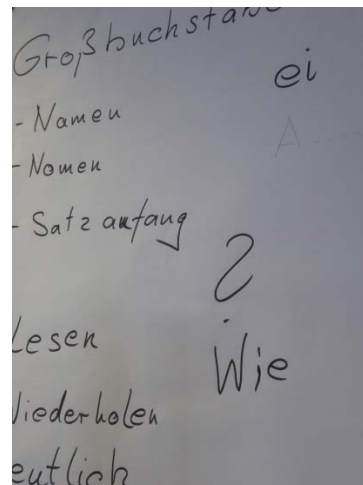 Großbuchstabe
ei
- Namen
A
- Nomen
- Satzanfang
?
Lesen
Wie
Wiederholen
eutlich